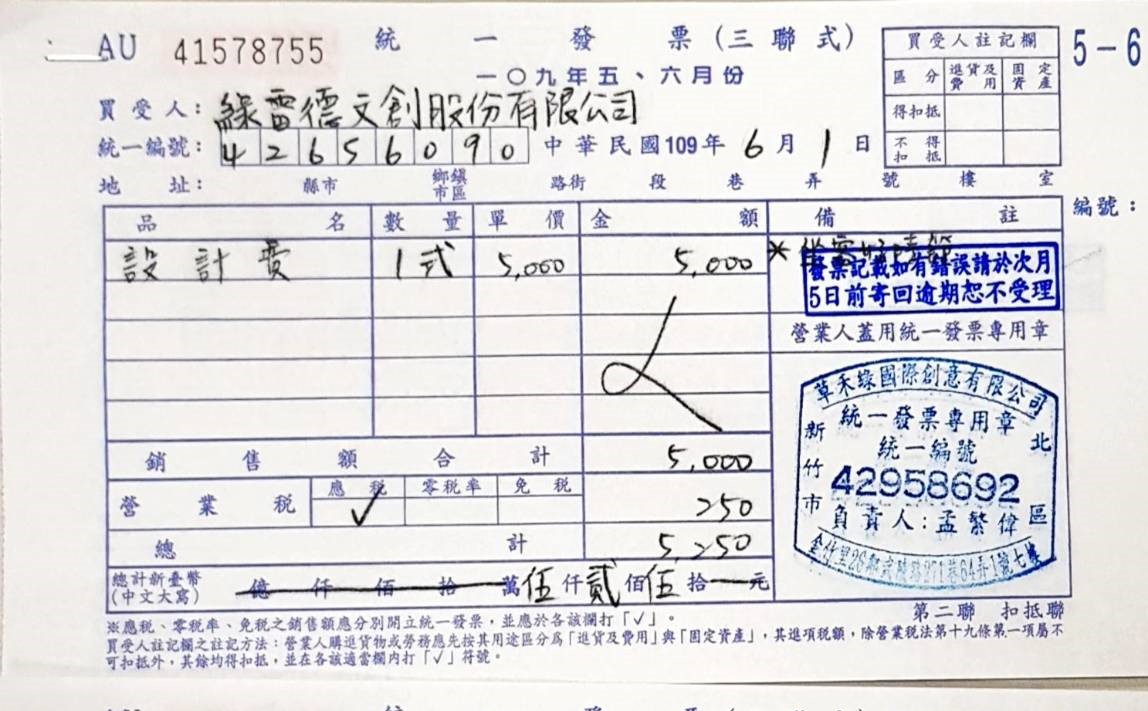 AU 41578755 統一發票(三聯式)
5-6
一〇九年五、六月份
買受人註記欄
區分 進貨及費用 固定資產
得扣抵
不得扣抵
買受人：綠雷德文創股份有限公司
統一編號：42656090 中華民國109年6月1日
地址： 縣市 鄉鎮市區 路街 段 巷 弄 號 樓 室
編號：
品名 數量 單價 金額 備註
設計費 1式 5,000 5,000 *
發票記載如有錯誤請於次月
5日前寄回逾期恕不受理
營業人蓋用統一發票專用章
草禾綠國際創意有限公司
統一發票專用章
統一編號
新竹市 北區
42958692
負責人：孟繁偉
銷售額合計 5,000
營業稅 應稅 ✓ 零稅率 免稅 250
總計 5,250
總計新臺幣
(中文大寫) 億 仟 佰 拾 萬 伍仟貳佰伍拾 元
第二聯 扣抵聯
※應稅、零稅率、免稅之銷售額應分別開立統一發票，並應於各該欄打「✓」。
買受人註記欄之註記方法：營業人購進貨物或勞務應先按其用途區分為「進貨及費用」與「固定資產」，其進項稅額，除營業稅法第十九條第一項屬不
可扣抵外，其餘均得扣抵，並在各該適當欄內打「✓」符號。